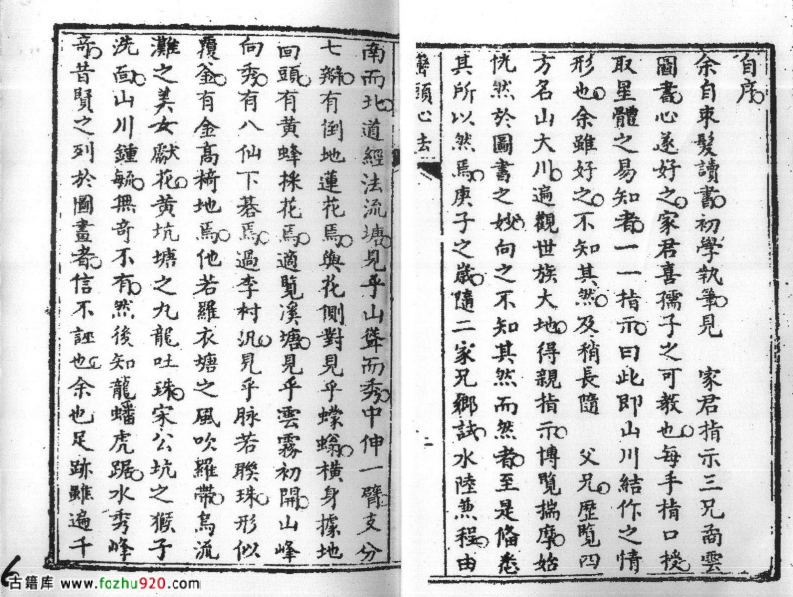 自序
余自束髮讀書初學執筆見　家君指示三兄喬雲
圖書心遂好之家君喜孺子之可教也每手指口授
取星體之易知者一一指示曰此即山川結作之情
形也余雖好之不知其然及稍長隨　父兄歷覽四
方名山大川遍觀世族大地得親指示博覽揣摩始
恍然於圖書之妙向之不知其然而然者至是偹悉
其所以然焉庚子之歲隨二家兄鄉試水陸兼程由
巒頭心法
南而北道經法流塘見乎山聳而秀中伸一臂支分
七瓣有倒地蓮花焉與花側對見乎蠑螉橫身據地
回頭有黃蜂採花焉適覽溪塘見乎雲霧初開山峰
向秀有八仙下碁焉過李村汎見乎脉若聯珠形似
覆金有金髙椅地焉他若羅衣塘之風吹羅帶烏流
灘之美女獻花黃坑塘之九龍吐珠家公坑之猴子
洗面山川鍾毓無奇不有然後知龍蟠虎踞水秀峰
奇昔賢之列於圖畫者信不誣也余也足跡雖遍千
古籍库 www.fozhu920.com